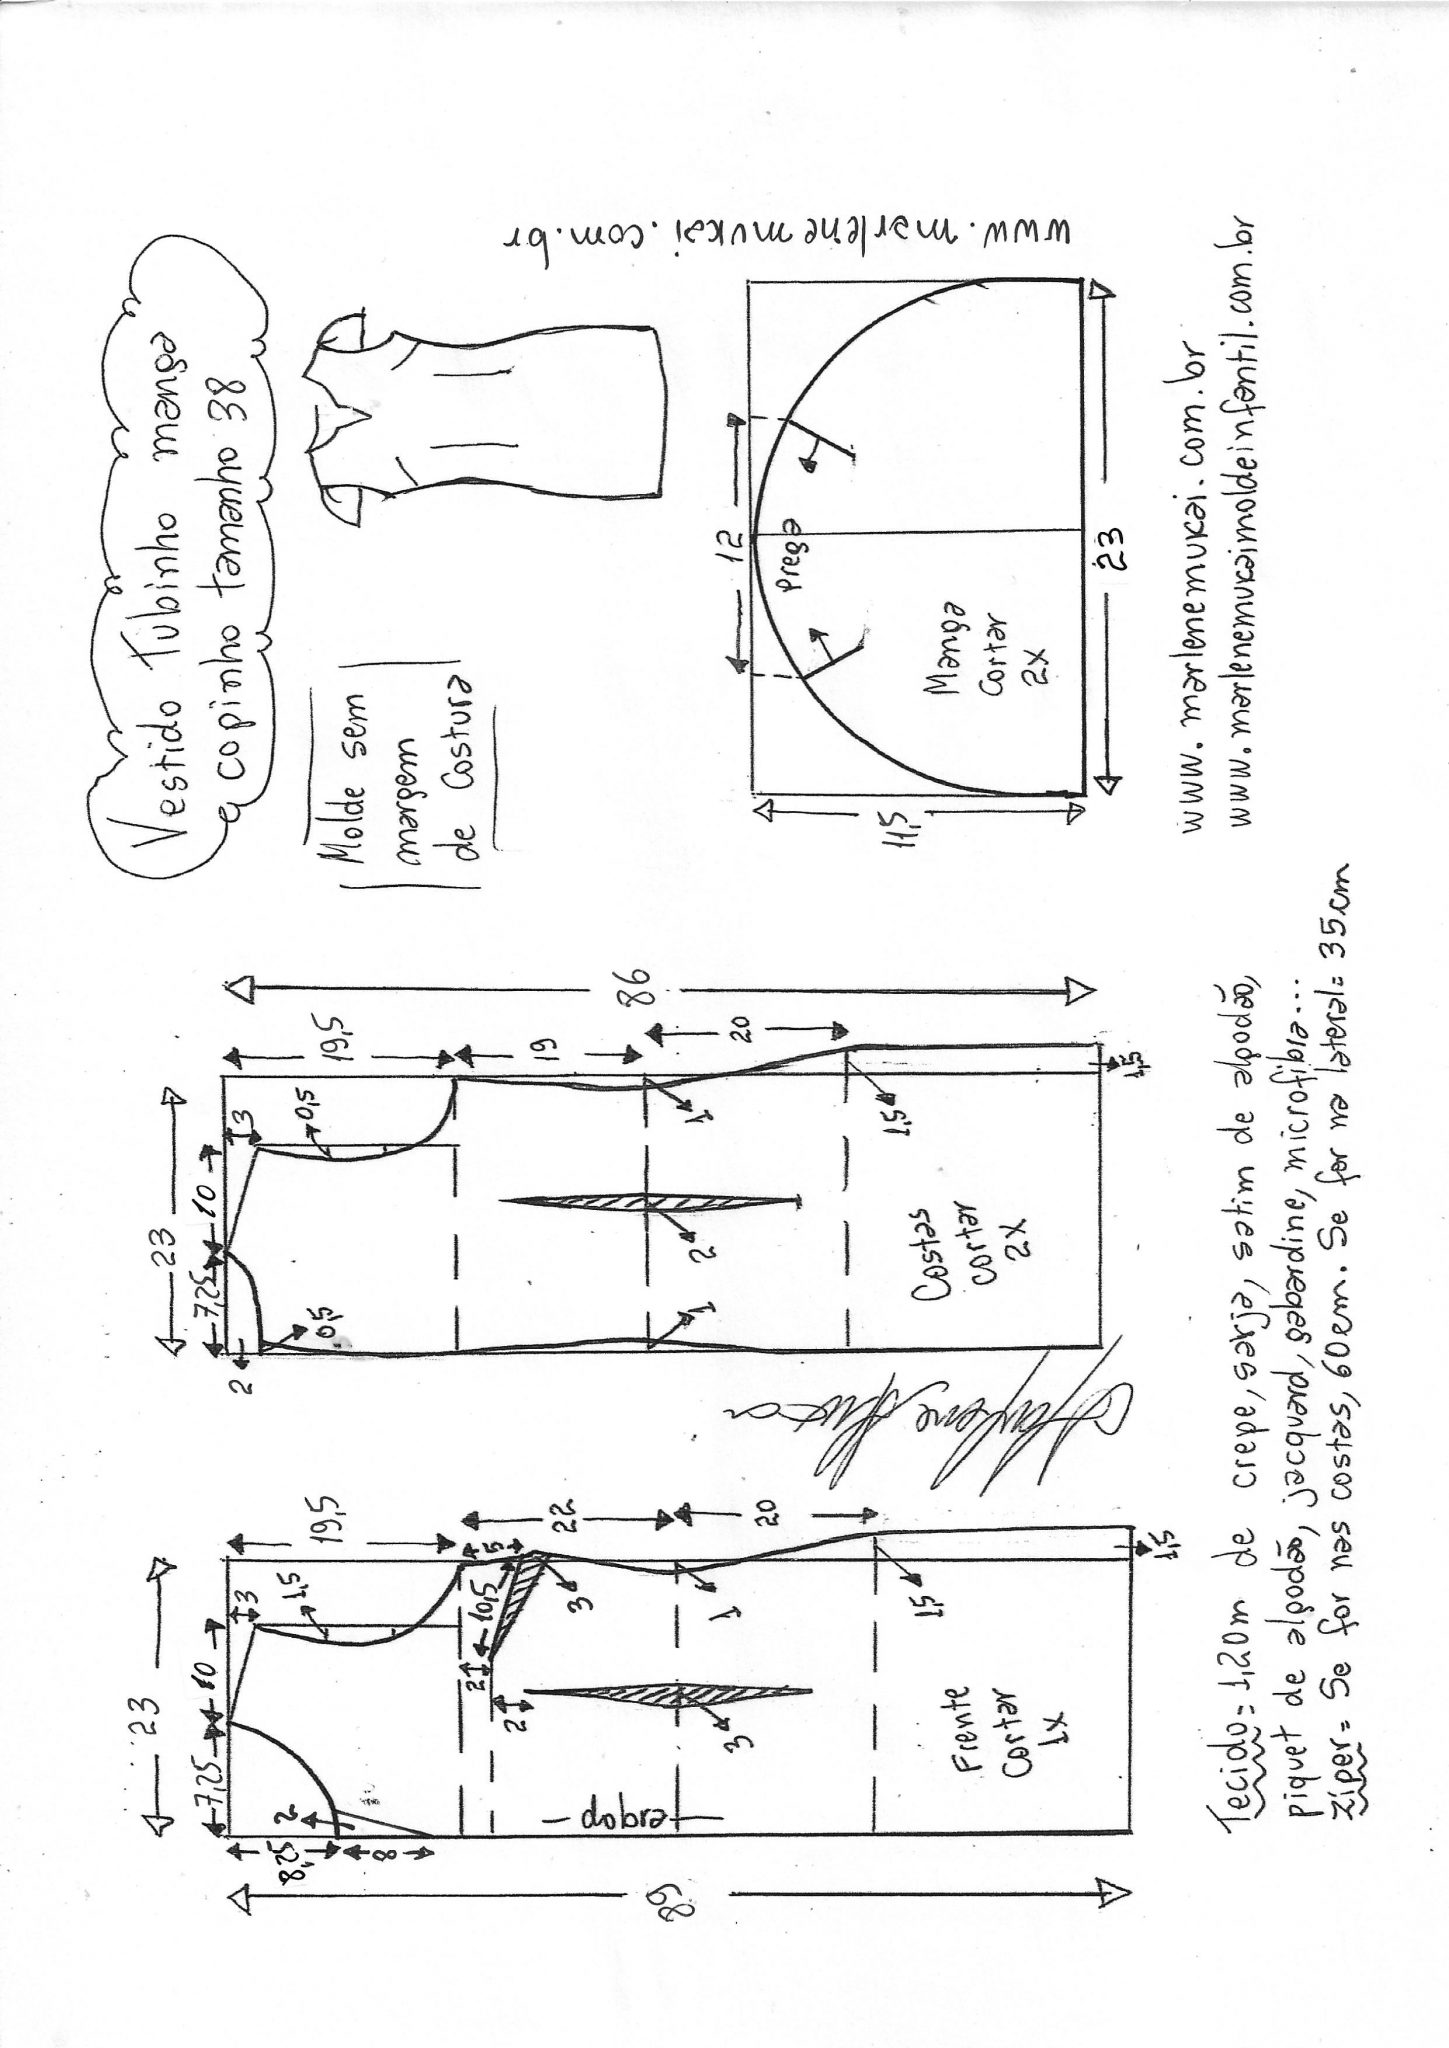 Vestido Tubinho manga
copinho tamanho 38
Molde sem
margem
de Costura
www.marlenemukai.com.br
23
7,25
10
3
19,5
1,5
8,25
8
2
5
10,5
2
2
3
22
3
1
20
1,5
1,5
dobra
Frente
Cortar
1x
89
23
7,25
10
3
19,5
0,5
2
0,5
19
1
2
1
20
1,5
1,5
Costas
cortar
2x
86
12
Prega
Manga
Cortar
2x
11,5
23
www.marlenemukai.com.br
www.marlenemukaimoldeinfantil.com.br
Tecido=1,20m de crepe, sarja, satim de algodão,
piquet de algodão, jacquard, gabardine, microfibra...
Ziper= Se for nas costas, 60cm. Se for na lateral= 35cm